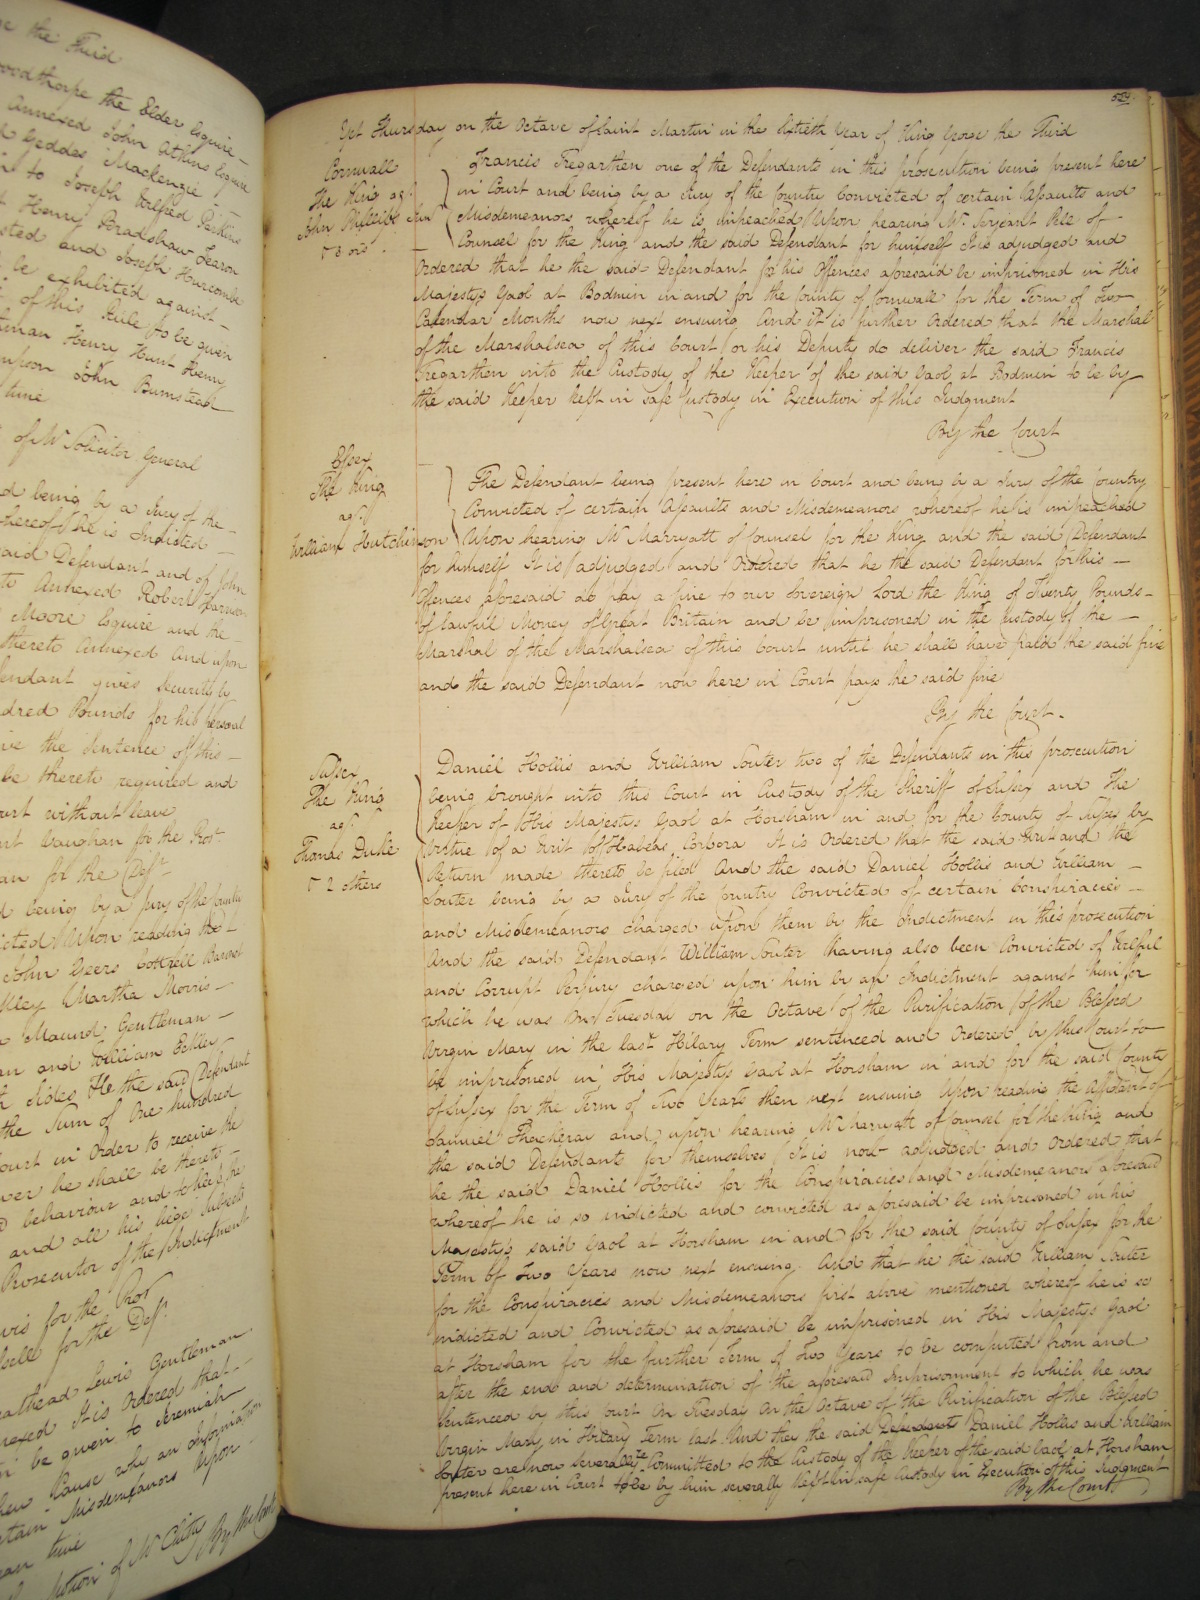 ge the Third
Goodthorpe the Elder Esquire
Annexed John Atkins Esquire
Geddes Mackenzie
to Joseph Alfred Parkins
Henry Bradshaw Fearon
sted and Joseph Harcombe
be exhibited against
of this Rule to be given
man Henry Hunt Henry
upon John Bumstead
time
of Mr Solicitor General
d being by a Jury of the
hereof he is Indicted
said Defendant and of John
to Annexed Robert
Moore Esquire and the
thereto Annexed And upon
endant gives security by
dred Pounds for his personal
ive the Sentence of this
be thereto required and
ourt without leave
Vaughan for the Prosr.
an for the Deft
d being by a Jury of the County
icted Upon reading the
John Geers Cottrell Baronet
lley Martha Morris
Maund Gentleman
an and William
h sides He the said Defendant
the Sum of One hundred
Court in Order to receive the
ver he shall be thereto
behaviour and to keep the
and all his liege Subjects
Prosecutor of the Indictment
for the Prosr
for the Deft.
eathead Lewis Gentleman
nexed It is Ordered that
be given to Jeremiah
hew Cause why an Information
rtain Misdemeanors Upon
an time
Motion of Mr Chitty By the Court
524
Yet Thursday on the Octave of Saint Martin in the Sixtieth Year of King George the Third
Cornwall
The King agt
John Phillips Jun
& 8 ors
Francis Tregarthen one of the Defendants in this prosecution being present here
in Court and being by a Jury of the Country Convicted of certain Assaults and
Misdemeanors whereof he is impeached Upon hearing Mr. Serjeant Pell of
Counsel for the King and the said Defendant for himself It is adjudged and
Ordered that he the said Defendant for his Offences aforesaid be imprisoned in His
Majestys Gaol at Bodmin in and for the County of Cornwall for the Term of Two
Calendar Months now next ensuing And it is further Ordered that the Marshal
of the Marshalsea of this Court or his Deputy do deliver the said Francis
Tregarthen into the Custody of the Keeper of the said Gaol at Bodmin to be by
the said Keeper kept in safe Custody in Execution of this Judgment
By the Court
Essex
The King
agt.
William Hutchinson
The Defendant being present here in Court and being by a Jury of the Country
Convicted of certain Assaults and Misdemeanors whereof he is impeached
Upon hearing Mr Marryatt of Counsel for the King and the said Defendant
for himself It is adjudged and Ordered that he the said Defendant for his
Offences aforesaid do pay a fine to our Sovereign Lord the King of Twenty Pounds
of lawful Money of Great Britain and be imprisoned in the Custody of the
Marshal of the Marshalsea of this Court until he shall have paid the said fine
and the said Defendant now here in Court pays the said fine
By the Court
Sussex
The King
agt.
Thomas Duke
& 2 others
Daniel Hollis and William Souter two of the Defendants in this prosecution
being brought into this Court in Custody of the Sheriff of Sussex and The
Keeper of His Majestys Gaol at Horsham in and for the County of Sussex by
virtue of a Writ of Habeas Corpora It is Ordered that the said Writ and the
Return made thereto be filed And the said Daniel Hollis and William
Souter being by a Jury of the Country Convicted of certain Conspiracies
and Misdemeanors charged upon them by the Indictment in this prosecution
And the said Defendant William Souter having also been Convicted of Wilful
and Corrupt Perjury charged upon him by an Indictment against him for
which he was on Tuesday on the Octave of the Purification of the Blessed
Virgin Mary in the last Hilary Term sentenced and Ordered by this Court to
be imprisoned in His Majestys Gaol at Horsham in and for the said County
of Sussex for the Term of Two Years then next ensuing Upon reading the Affidavit of
Samuel Thackeray and upon hearing Mr Marryatt of Counsel for the King and
the said Defendants for themselves It is now adjudged and Ordered that
he the said Daniel Hollis for the Conspiracies and Misdemeanors aforesaid
whereof he is so indicted and convicted as aforesaid be imprisoned in his
Majestys said Gaol at Horsham in and for the said County of Sussex for the
Term of Two Years now next ensuing. And that he the said William Souter
for the Conspiracies and Misdemeanors first above mentioned whereof he is so
indicted and Convicted as aforesaid be imprisoned in His Majestys Gaol
at Horsham for the further Term of Two Years to be computed from and
after the end and determination of the aforesaid Imprisonment to which he was
sentenced by this Court On Tuesday on the Octave of the Purification of the Blessed
Virgin Mary in Hilary Term last And they the said Defendants Daniel Hollis and William
Souter are now severally Committed to the Custody of the Keeper of the said Gaol at Horsham
present here in Court to be by him severally kept in safe Custody in Execution of this Judgment
By the Court.